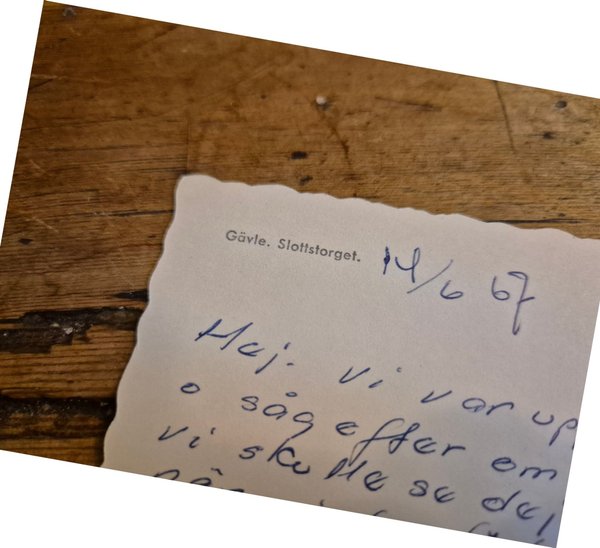 Gävle. Slottstorget. 14/6 67
Hej. Vi var up
o såg efter om
vi skulle se de